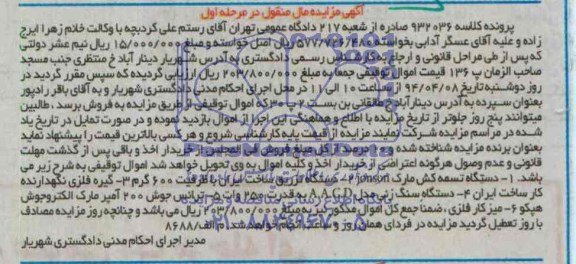 آگهی مزایده مال منقول در مرحله اول
پرونده کلاسه 932036 صادره از شعبه 217 دادگاه عمومی تهران آقای رستم علی گردبچه با وکالت خانم زهرا ایرج
زاده و علیه آقای عسگر آدابی بخواسته 577/726/480 ریال اصل خواسته و مبلغ 15/000/000 ریال نیم عشر دولتی
که پس از طی مراحل قانونی و ارجاع به کارشناس رسمی دادگستری به آدرس شهریار دینار آباد خ منتظری جنب مسجد
صاحب الزمان پ 136 قیمت اموال توقیفی جمعا به مبلغ 203/800/000 ریال ارزیابی گردیده که سپس مقرر گردید در
روز دوشنبه تاریخ 94/04/08 از ساعت 10 الی 11 در محل اجرای احکام مدنی دادگستری شهریار و به آقای باقر رادپور
بعنوان سپرده به آدرس دینارآباد خ طالقانی بن بست 2 پ 30 که اموال توقیفی از طریق مزایده به فروش برسد، طالبین
میتوانند پنج روز جلوتر از تاریخ مزایده با اطلاع و هماهنگی این اجرا از اموال بازدید نموده و در صورت تمایل در تاریخ یاد
شده در مراسم مزایده شرکت نمایند مزایده از قیمت پایه کارشناسی شروع و هر کسی بالاترین قیمت را پیشنهاد نماید
بعنوان برنده مزایده شناخته شده و ده درصد از کل مبلغ فروش فی المجلس از خریدار اخذ و باقی پس از گذشت مهلت
قانونی و عدم وصول هرگونه اعتراضی از خریدار اخذ و کلیه اموال به وی تحویل خواهد شد اموال توقیفی به شرح زیر می
باشد. 1- دستگاه تسمه کش مارک jonson 2- دستگاه تزریق ساخت ایران با ظرفیت 600 گرم 3- گیره فلزی نگهدارنده
کار ساخت ایران 4- دستگاه سنگ زنی مدل A.A.G.D به قدرت 250 وات 5- ترانس جوش 200 آمپر مارک الکتروجوش
هپکو 6- میز کار فلزی، ضمنا جمع کل اموال مذکور نیز به مبلغ 203/800/000 ریال می باشد و چنانچه روز مزایده مصادف
با روز تعطیل گردید مزایده در فردای همان روز و ساعت انجام خواهد شد. م الف/8688
مدیر اجرای احکام مدنی دادگستری شهریار